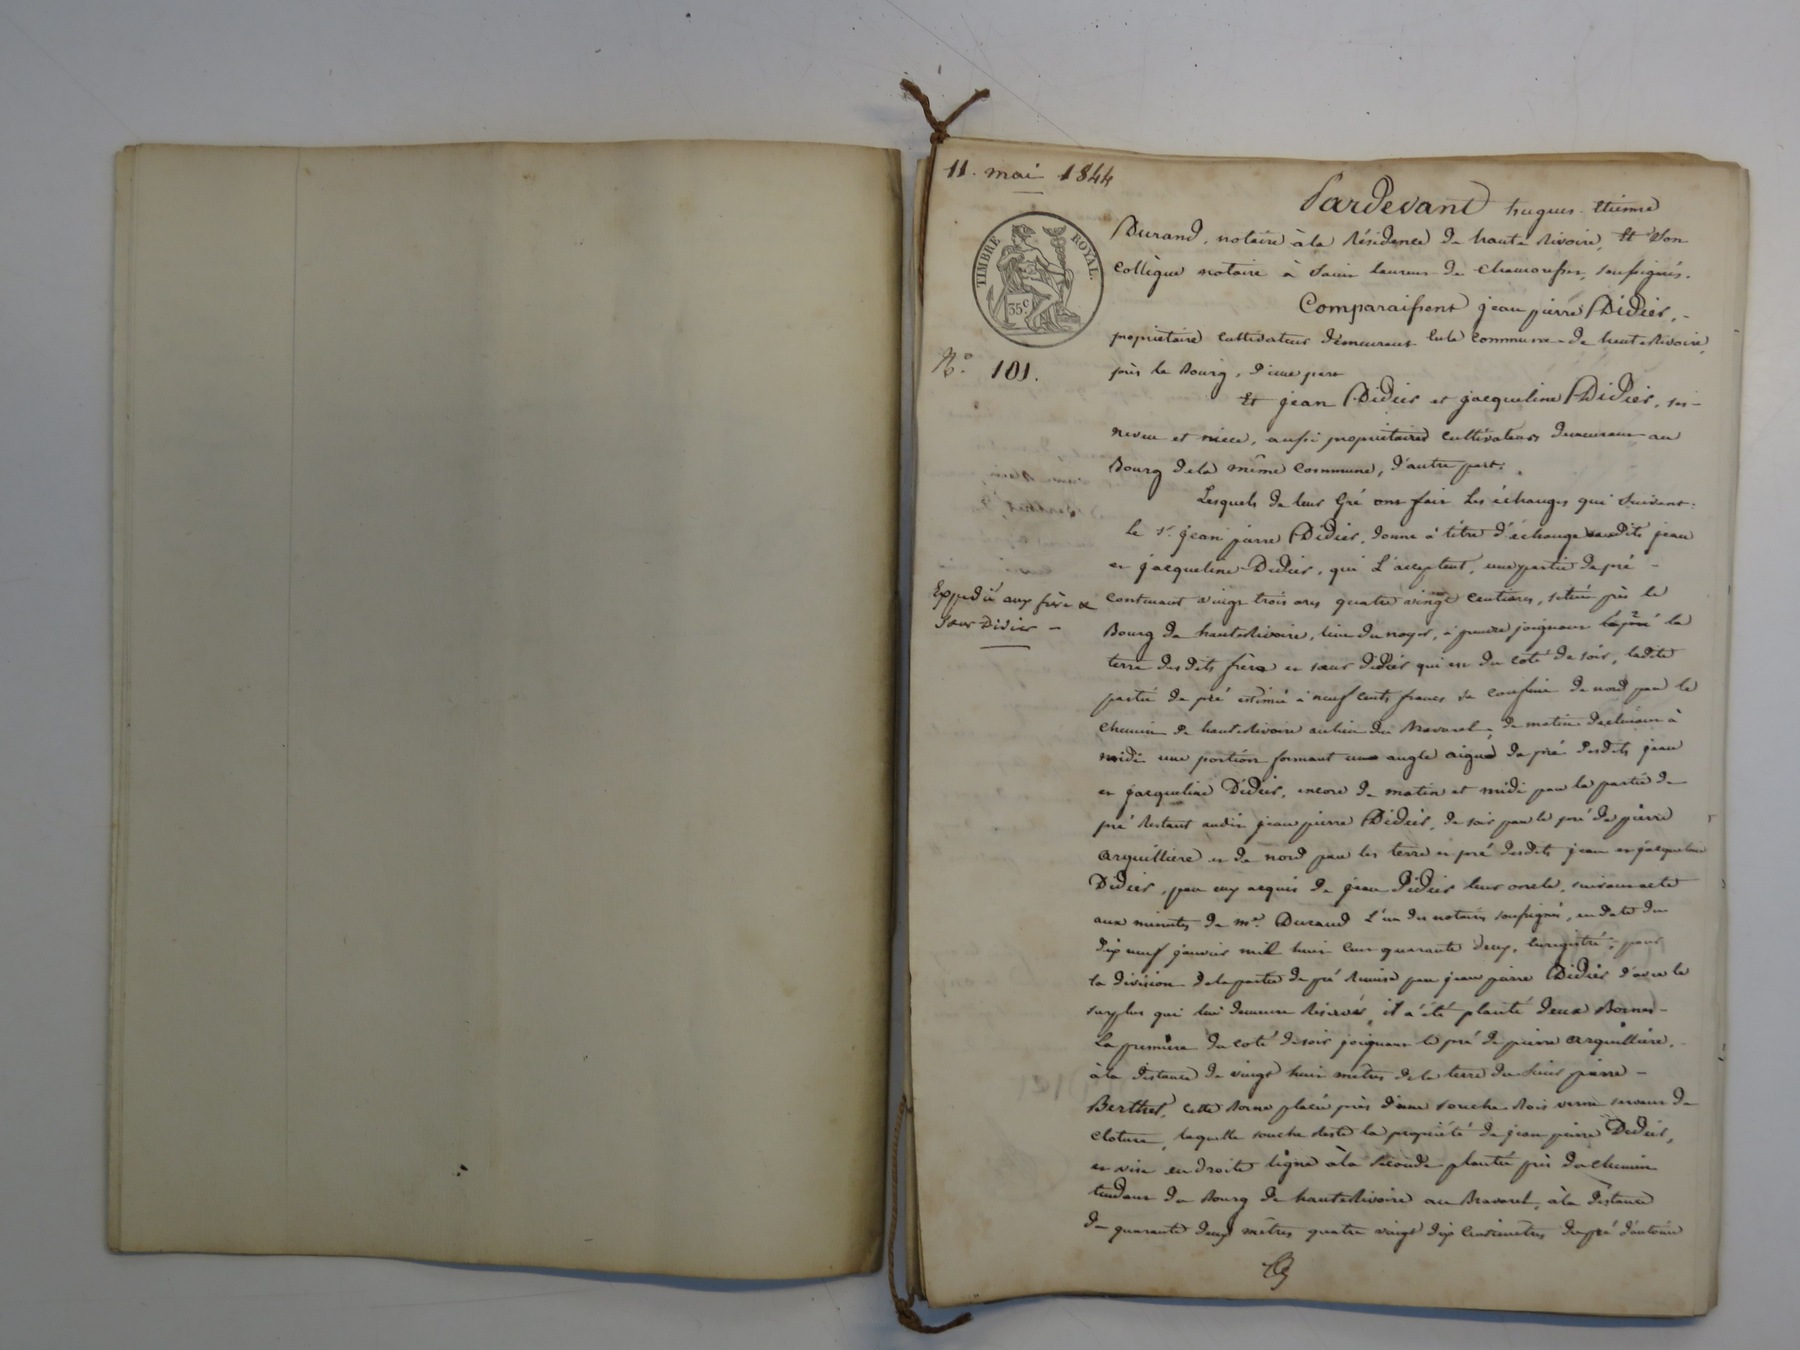 11. mai 1844
TIMBRE ROYAL.
35.c
N.o 101.
Expedié aux frère &
Sœur Didier –
Pardevant hugues-Etienne
Durand, notaire à la Résidence de haute Rivoire, Et Son
Collègue notaire à Saint Laurent de Chamousset, soussignés.
Comparaissent jean pierre Didier, -
proprietaire cultivateur demeurant en la Commune de haute Rivoire,
près le Bourg, d'une part
Et jean Didier et jacqueline Didier, ses -
neveu et niece, aussi proprietaires cultivateurs demeurant au
Bourg dela même Commune, d'autre part.
Lesquels de leur Gré ont fait Les échanges qui Suivent.
le sr. jean pierre Didier, donne à titre d'échange auxdits jean
et jacqueline Didier, qui L'acceptent, une partie de pré -
contenant vingt trois ares quatre vingt centiares, située près le
Bourg de haute Rivoire, lieu du noyer, à prendre joignant la
terre desdits frère et sœur didier qui est du coté de soir, ladite
partie de pré estimée à neuf cents francs se confine de nord par le
chemin de haute Rivoire au lieu du Bravaret, de matin declinant à
midi une portion formant un angle aigu de pré desdits jean
et jacqueline Didier, encore de matin et midi par la partie de
pré Restant audit jean pierre Didier, de soir par le pré de pierre
arquilliere et de nord par les terre et pré desdits jean et jacqueline
Didier, par eux acquis de jean Didier leur oncle, suivant acte
aux minutes de me. Durand L'un des notaires soussignés, en date du
dix neuf janvier mil huit cent quarante deux, Enregistré; pour
la division dela partie de pré Remise par jean pierre Didier d'avec le
surplus qui lui demeure Réservé, il a été planté deux Bornes -
La première du coté de soir joignant le pré de pierre arquilliere, -
à la distance de vingt huit mètres dela terre du Sieur pierre -
Berthet, cette Borne placée près d'une souche Bois verne servant de
cloture, laquelle souche Reste la propriété de jean pierre Didier,
et vise en droite ligne à la Seconde plantée près du chemin
tendant du Bourg de haute Rivoire au Bravaret, à la distance
de quarante deux mètres quatre vingt dix centimètres du pré